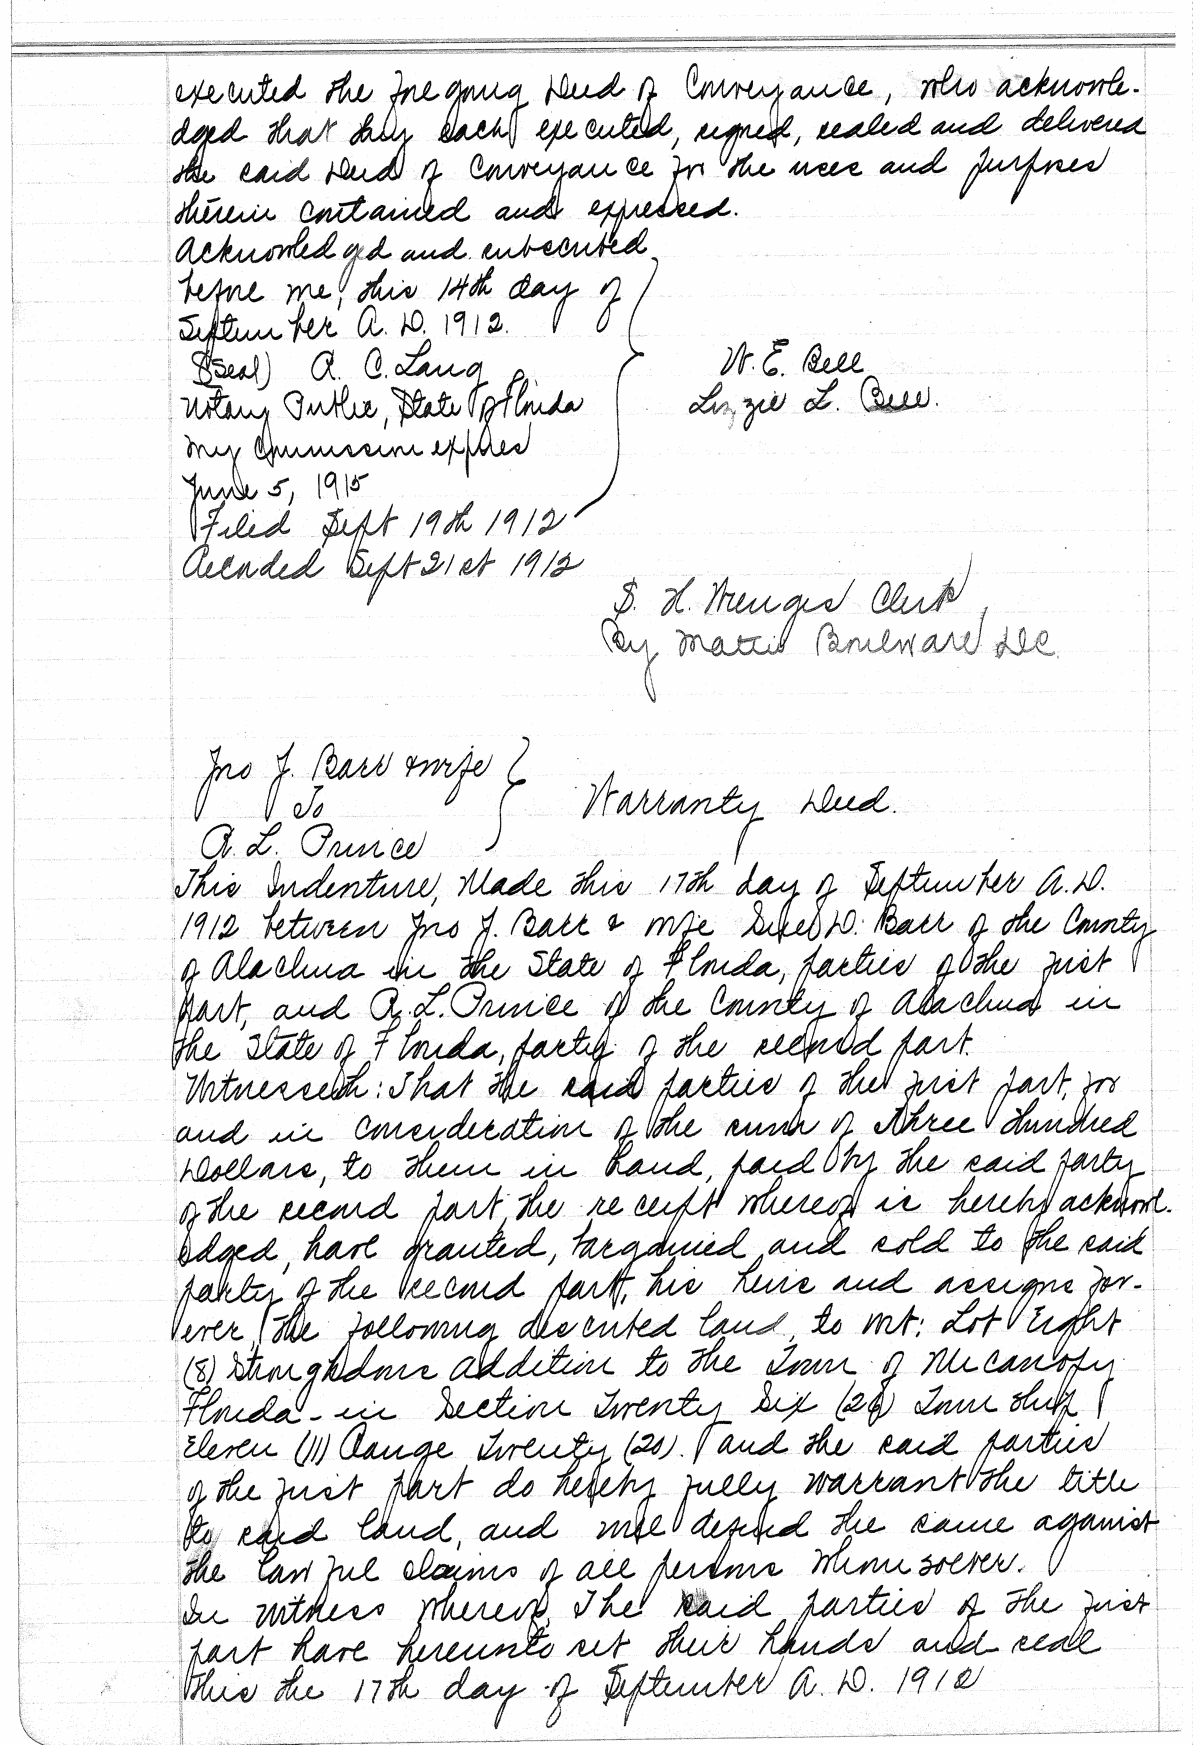 executed the foregoing Deed of Conveyance, who acknowle-
dged that they each executed, signed, sealed and delivered
the said Deed of Conveyance for the uses and purposes
therein contained and expressed.
Acknowledged and subscribed
before me, this 14th day of
September A.D. 1912.
(Seal) R. C. Lang
W. E. Bell
Notary Public, State of Florida
Lizzie L. Bell.
My Commission expires
June 5, 1915
Filed Sept 19th 1912
Recorded Sept 21st 1912
S. H. Wienges Clerk
By Mattie Boulware D.C.
Jno J. Barr & wife
To
Warranty Deed.
R. L. Prince
This Indenture, Made this 17th day of September A.D.
1912 between Jno J. Barr & wife D. Barr of the County
of Alachua in the State of Florida, parties of the first
part, and R. L. Prince of the County of Alachua in
the State of Florida, party of the second part.
Witnesseth: That the said parties of the first part, for
and in consideration of the sum of three Hundred
Dollars, to them in hand, paid by the said party
of the second part, the receipt whereof is hereby acknowl-
edged, have granted, bargained and sold to the said
party of the second part, his heirs and assigns for-
ever, the following described land, to wit: Lot Eight
(8) Stronghdons Addition to the Town of Micanopy
Florida - in Section Twenty Six (26) Township
Eleven (11) Range Twenty (20). and the said parties
of the first part do hereby fully warrant the title
to said land, and will defend the same against
the lawful claims of all persons whomsoever.
In Witness Whereof, The said parties of the first
part have hereunto set their hands and seal
this the 17th day of September A.D. 1912